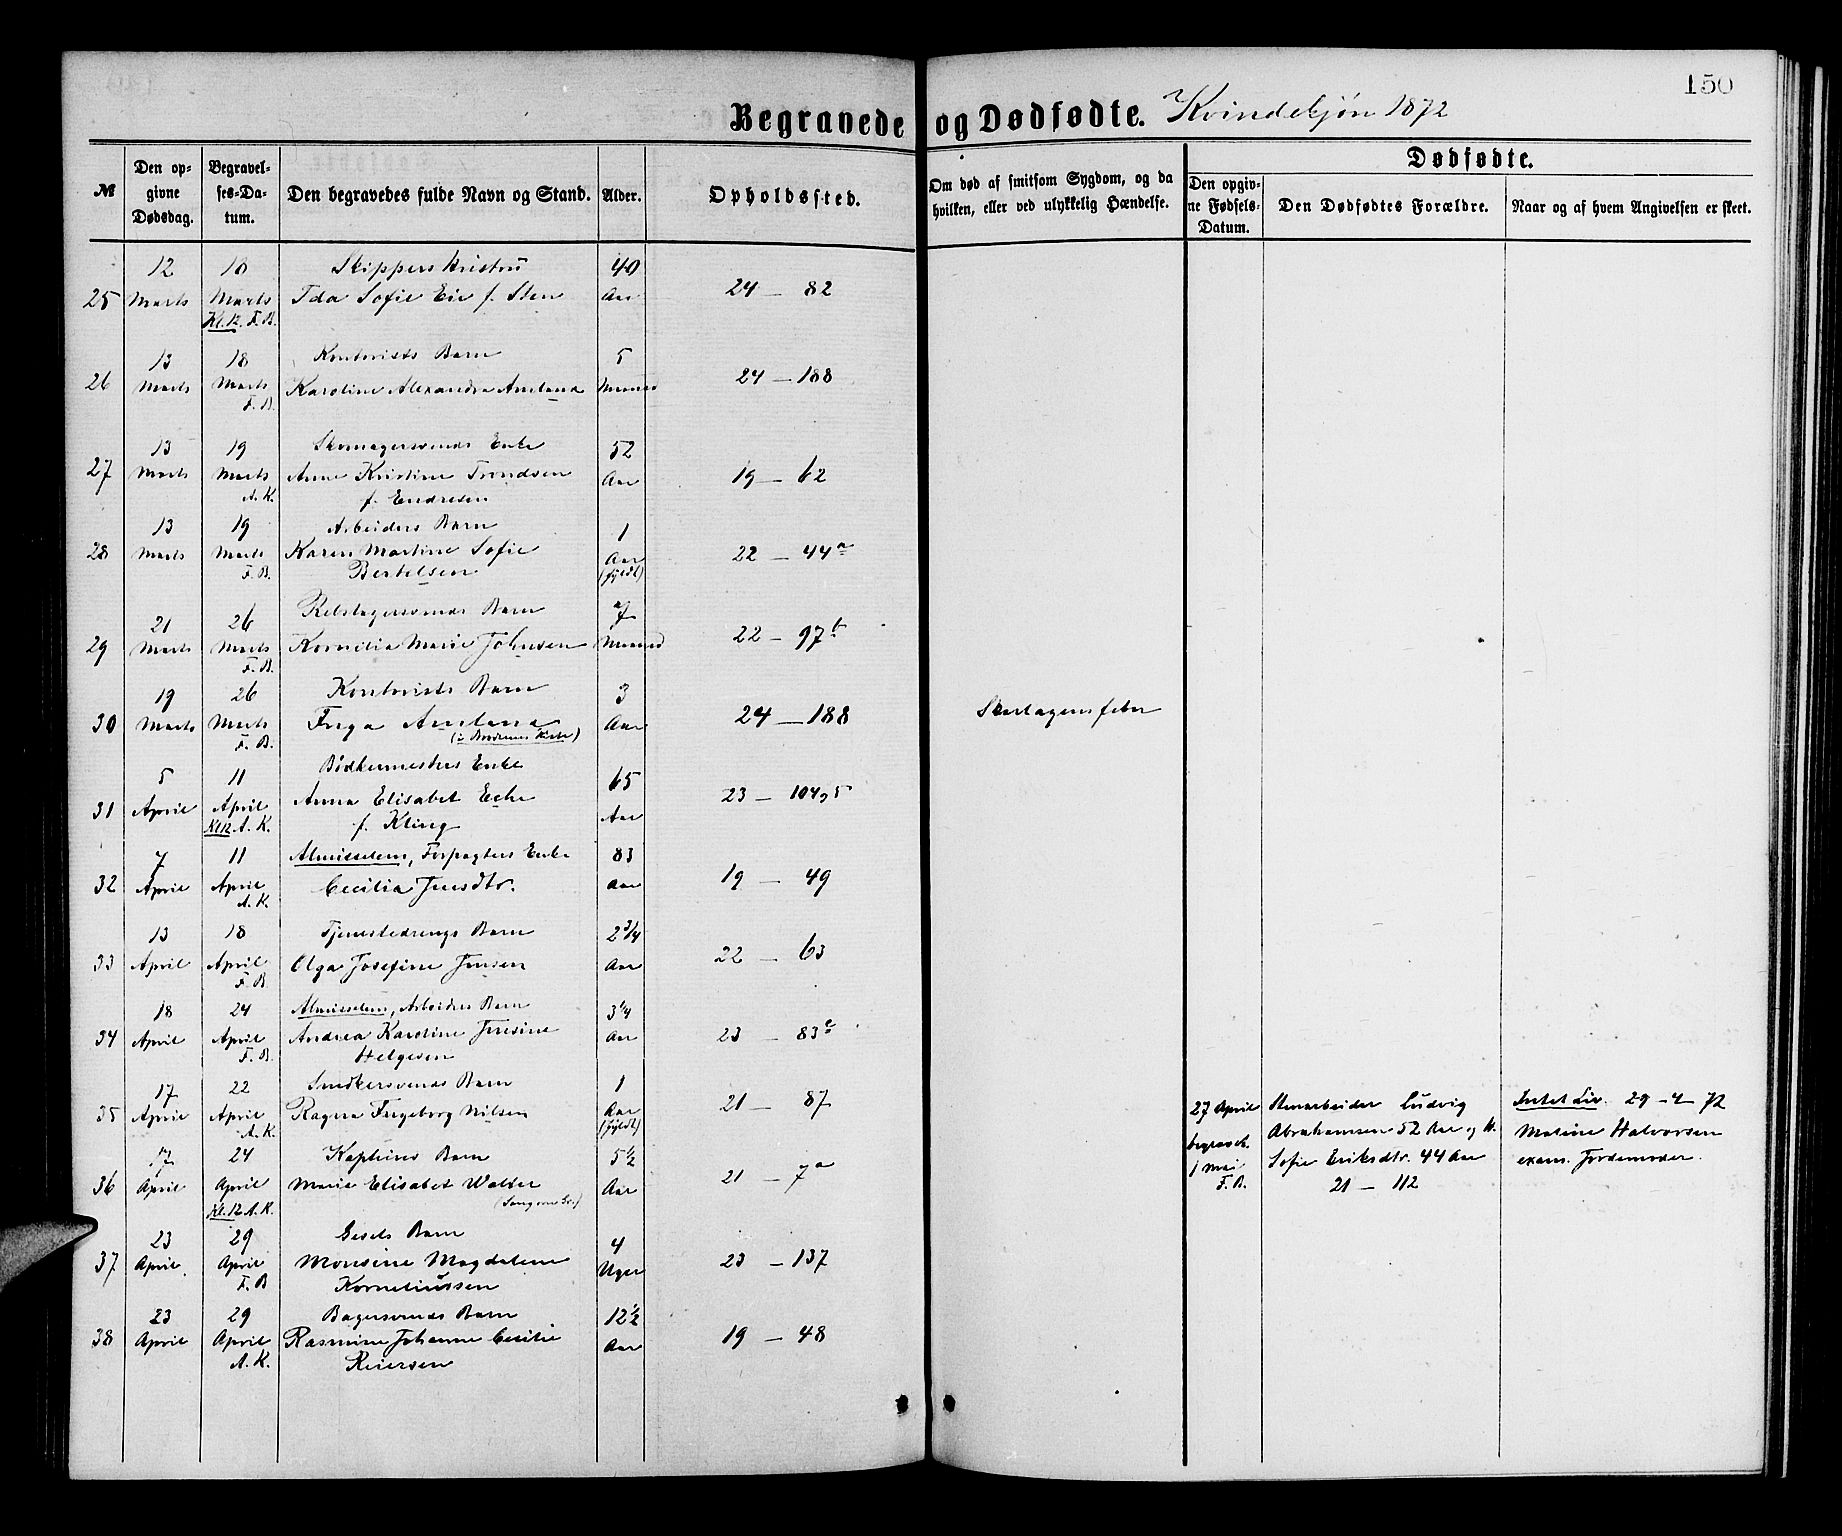 150
Begravede og Dødfødte. Kvindekjøn 1872
№
Den opgivne Dødsdag.
Begravelses-Datum.
Den begravedes fulde Navn og Stand.
Alder.
Opholdssted.
Om død af smitsom Sygdom, og da hvilken, eller ved ulykkelig Hændelse.
Dødfødte.
Den opgivne Fødsels-Datum.
Den Dødfødtes Forældre.
Naar og af hvem Angivelsen er skeet.
12 18 Skippers Hustru 40
25 Marts Marts Ida Sofie Eie f. Sten Aar 24 — 82
Kl. 12. F. B.
13 18 Kontorists Barn 5
26 Marts Marts Karoline Alexandra Amlana Maaned 24 — 188
F. B.
13 19 Skomagersvends Enke 52
27 Marts Marts Anne Kristine Trondsen Aar 19 — 62
A. K. f. Endresen
13 19 Arbeiders Barn 1
28 Marts Marts Karen Martine Sofie Aar 22 — 44a
F. B. Bertelsen (fyldt)
21 26 Rebslagersvends Barn 7
29 Marts Marts Kornilia Marie Johnsen Maaned 22 — 97b
F. B.
19 26 Kontorists Barn 3
30 Marts Marts Inga Amlana Aar 24 — 188 Skarlagensfeber
F. B. (i Broderens Kiste)
5 11 Bødkermesters Enke 65
31 April April Anna Elisabet Eche Aar 23 — 104,5
Kl 12 A. K. f. Kling
7 11 Almisselem, Forpagters Enke 83
32 April April Cecilia Jensdtr. Aar 19 — 49
A. K.
13 18 Tjenestedrengs Barn 2 3/4
33 April April Olga Josefine Jensen Aar 22 — 63
F. B.
18 24 Almisselem, Arbeiders Barn 3 1/4
34 April April Andrea Karoline Jensine Aar 23 — 83c
F. B. Helgesen
17 22 Snedkersvends Barn 1
35 April April Ragna Ingeborg Nilsen Aar 21 — 87
A. K. (fyldt)
27 April Stenarbeider Ludvig Intet Liv. 29-4-72
begravet Abrahamsen 52 Aar og H. Maline Halvorsen
1 Mai Sofie Eriksdtr. 44 Aar exam. Jordemoder.
F. B. 21 — 112
17 24 Kapteins Barn 5 1/2
36 April April Marie Elisabet Walder Aar 21 — 7a
Kl. 12 A. K.
23 29 Gesels Barn 4
37 April April Monsine Magdalene Uger 23 — 137
F. B Korneliussen
23 29 Bagersvends Barn 12 1/2
38 April April Rasmine Johanne Cecilie Aar 19 — 48
A. K. Reiersen